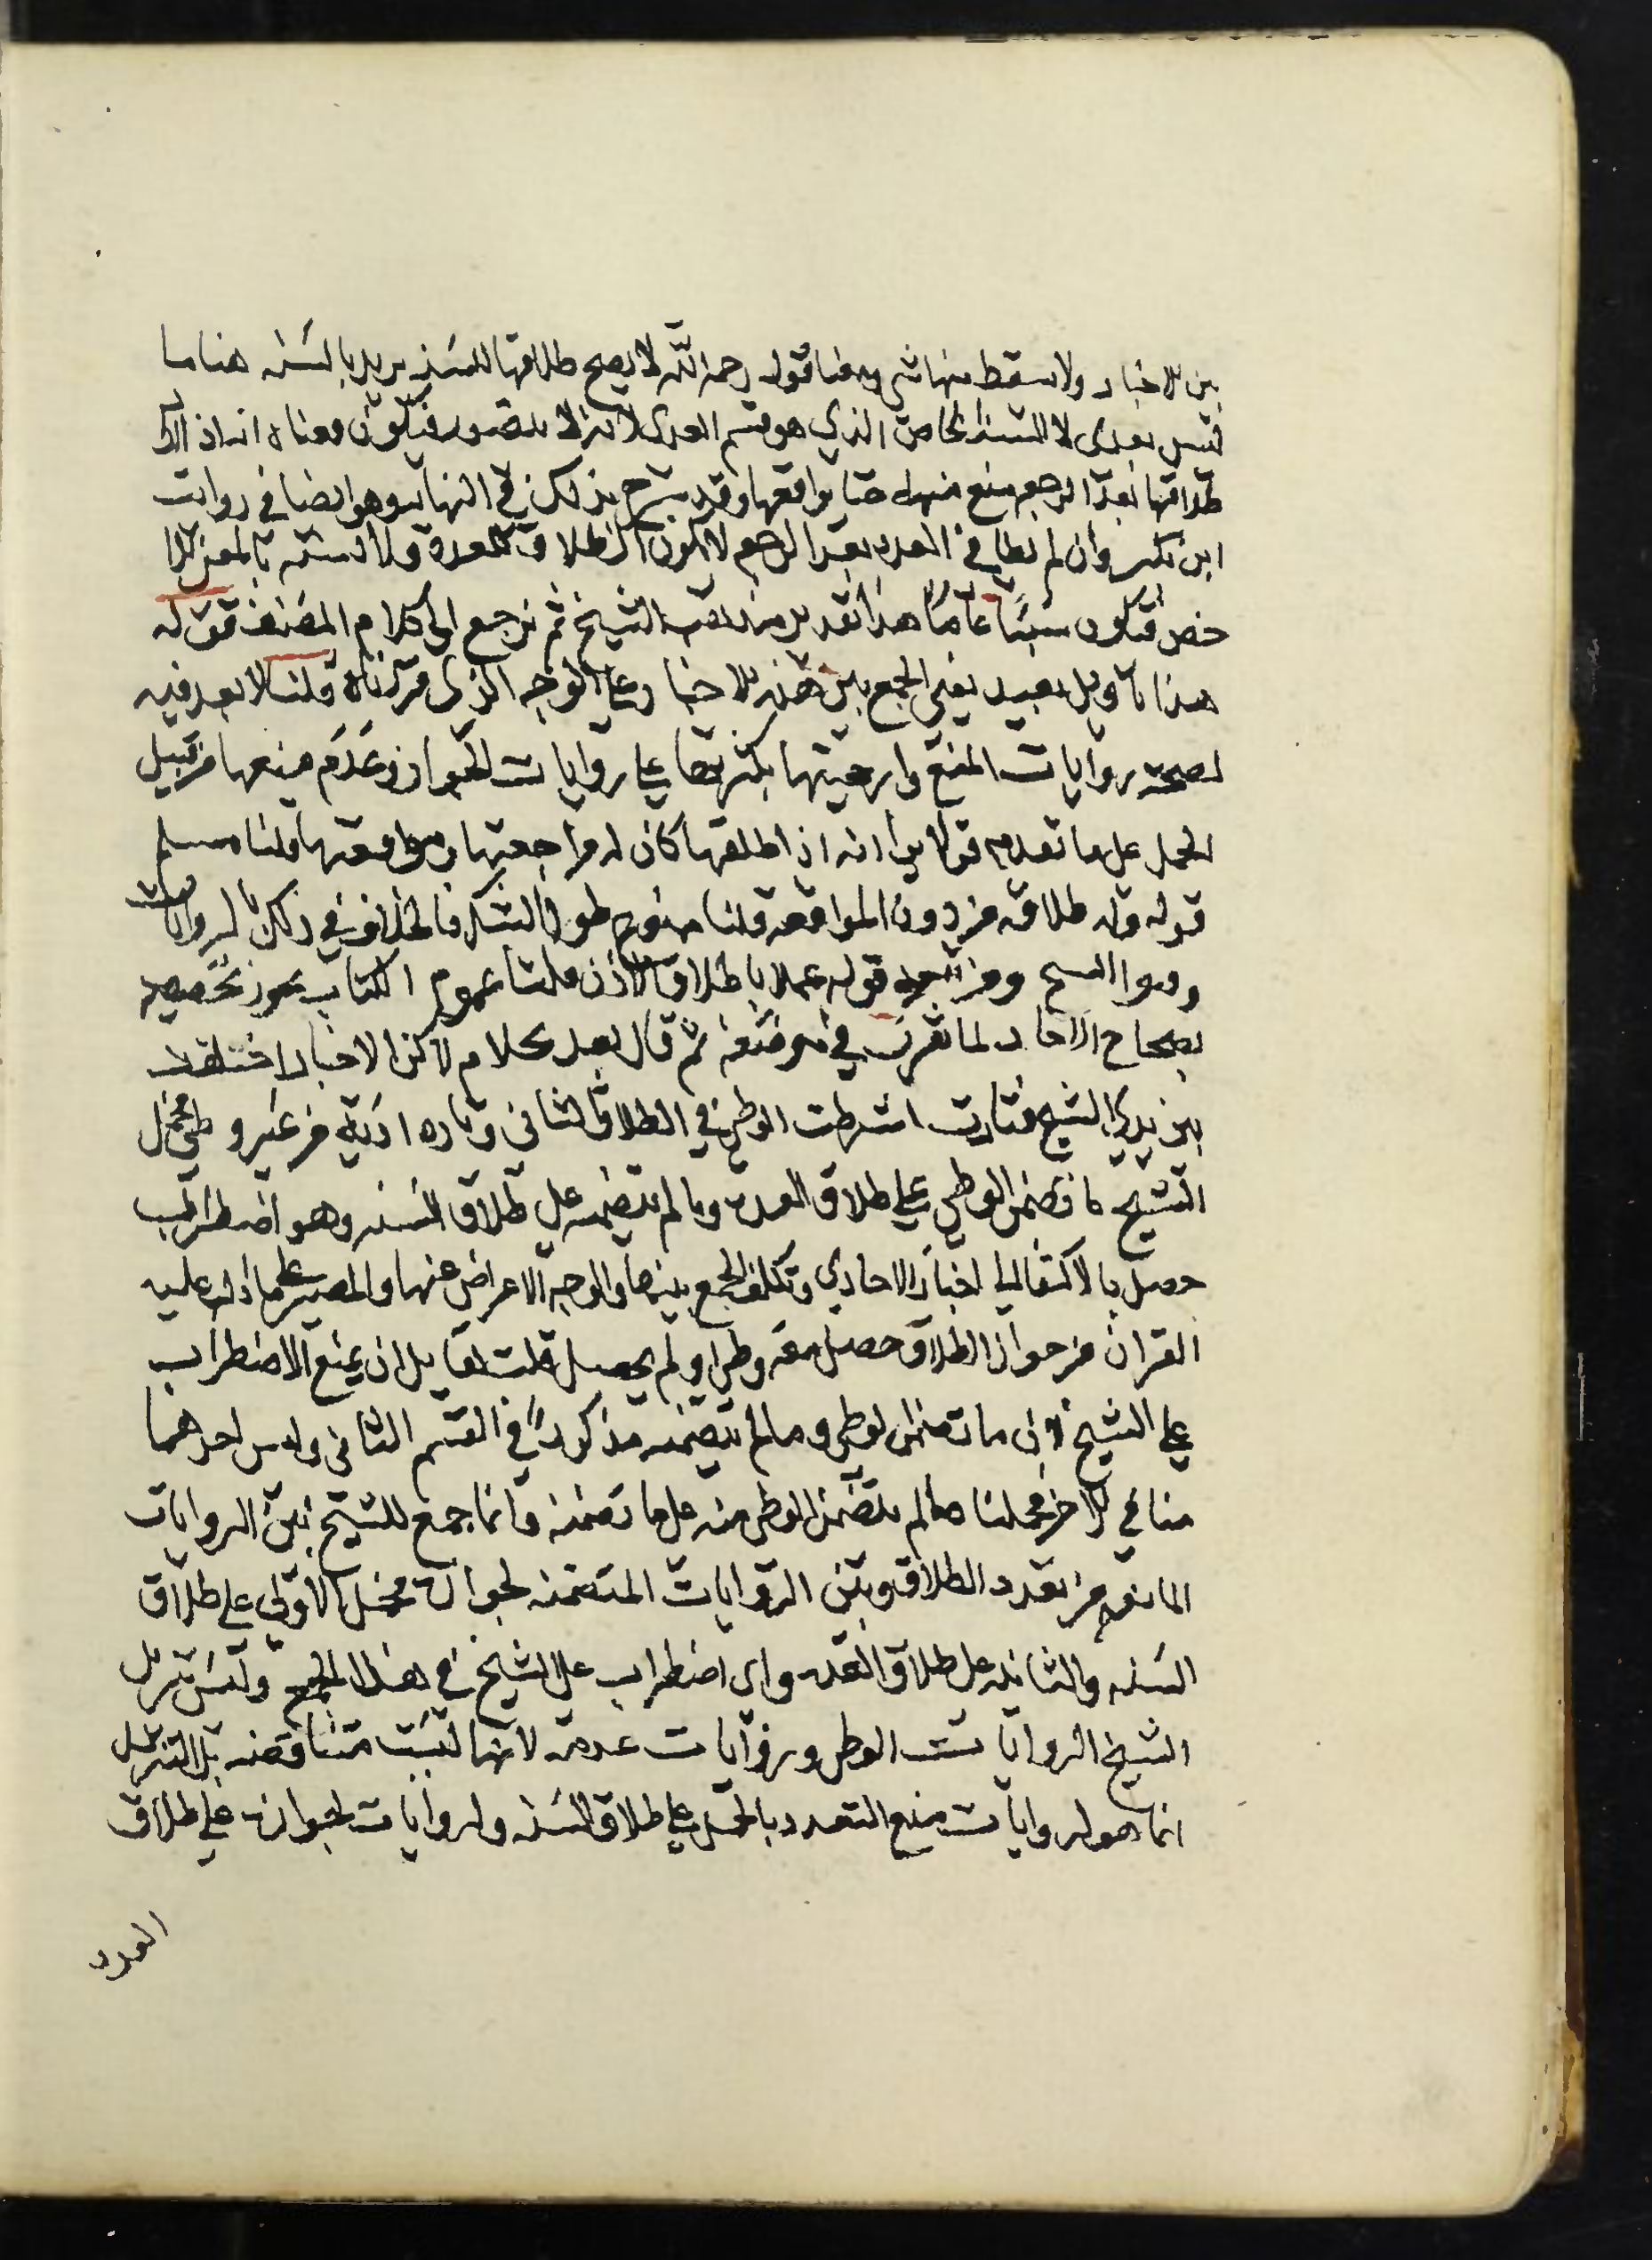 بين الاخبار ولا يسقط منها شي ومعنا قوله رحمه الله لا يصح طلاقها للسنه يريد بالسنه هنا ما
ليس بعدى لا السنه الخاص الذي هو قسم العدى لانه لا يتصور فيكون معناه انه اذا اراد
طلاقها بعد الرجعه منع منه حتا يواقعها وقد صرح بذلك في النهايه وهو ايضا في روايت
ابن بكير وان لم يطا في العده بعد الرجعه لا يكون الطلاق للعدة ولا للسنه بالمعنى الا
خص فيكون سنيا عاما هذا تقدير مذهب الشيخ ثم نرجع الى كلام المصنف قوله
هذا تاويل بعيد يعني الجمع بين هذه الاخبار على الوجه الذى قررناه قلنا لا بعد فيه
لصحته روايات المنع وارجحيتها بكثرتها على روايات الجواز وعدم منعها من قبيل
الحمل على ما تقدم قوله لنا انه اذا طلقها كان له مراجعتها ومواقعتها قلنا مسلم
قوله وله طلاقه من دون المواقعه قلنا ممنوع طولا لتشكر فالخلاف في ذلك الروايات
ومن تبعه قوله عملا باطلاق الاذن قلنا عموم الكتاب يجوز تخصيصه
بصحاح الاخبار لما تقرر في موضعه ثم قال بعد كلام لاكن الاخبار اختلفت
بين يدي الشيخ فتارت اشترطت الوطئ في الطلاق الثاني وتاره اذنت من غير وطئ فحمل
الشيخ ما تضمن الوطي على طلاق العده وما لم يتضمنه على طلاق السنه وهو اضطراب
حصل بالاكتفا اليا اخبار الاحادي وتكلف الجمع بينها والوجه الاعراض عنها والمصير على ما دل عليه
القران من جواز الطلاق حصل معه وطي او لم يحصل قلت لقايل ان يمنع الاضطراب
على الشيخ لان ما تضمن الوطي وما لم يتضمنه مذكورا في القسم الثاني وليس احدهما
منافي الاخر فحملنا مالم يتضمن الوطي منه على ما تضمنه وانما جمع الشيخ بين الروايات
المانعه من تعدد الطلاق وبين الروايات المتضمنه لجوازه فحمل الاولى على طلاق
السنه والثانيه على طلاق العده واى اضطراب على الشيخ في هذا الجمع وليس تنزيل
الشيخ الروايات الوطي وروايات عدمه لانها ليست متناقضه بل التنزيل
انما هو لروايات منع التعدد بالحمل على طلاق السنه ولروايات الجواز على طلاق
العده